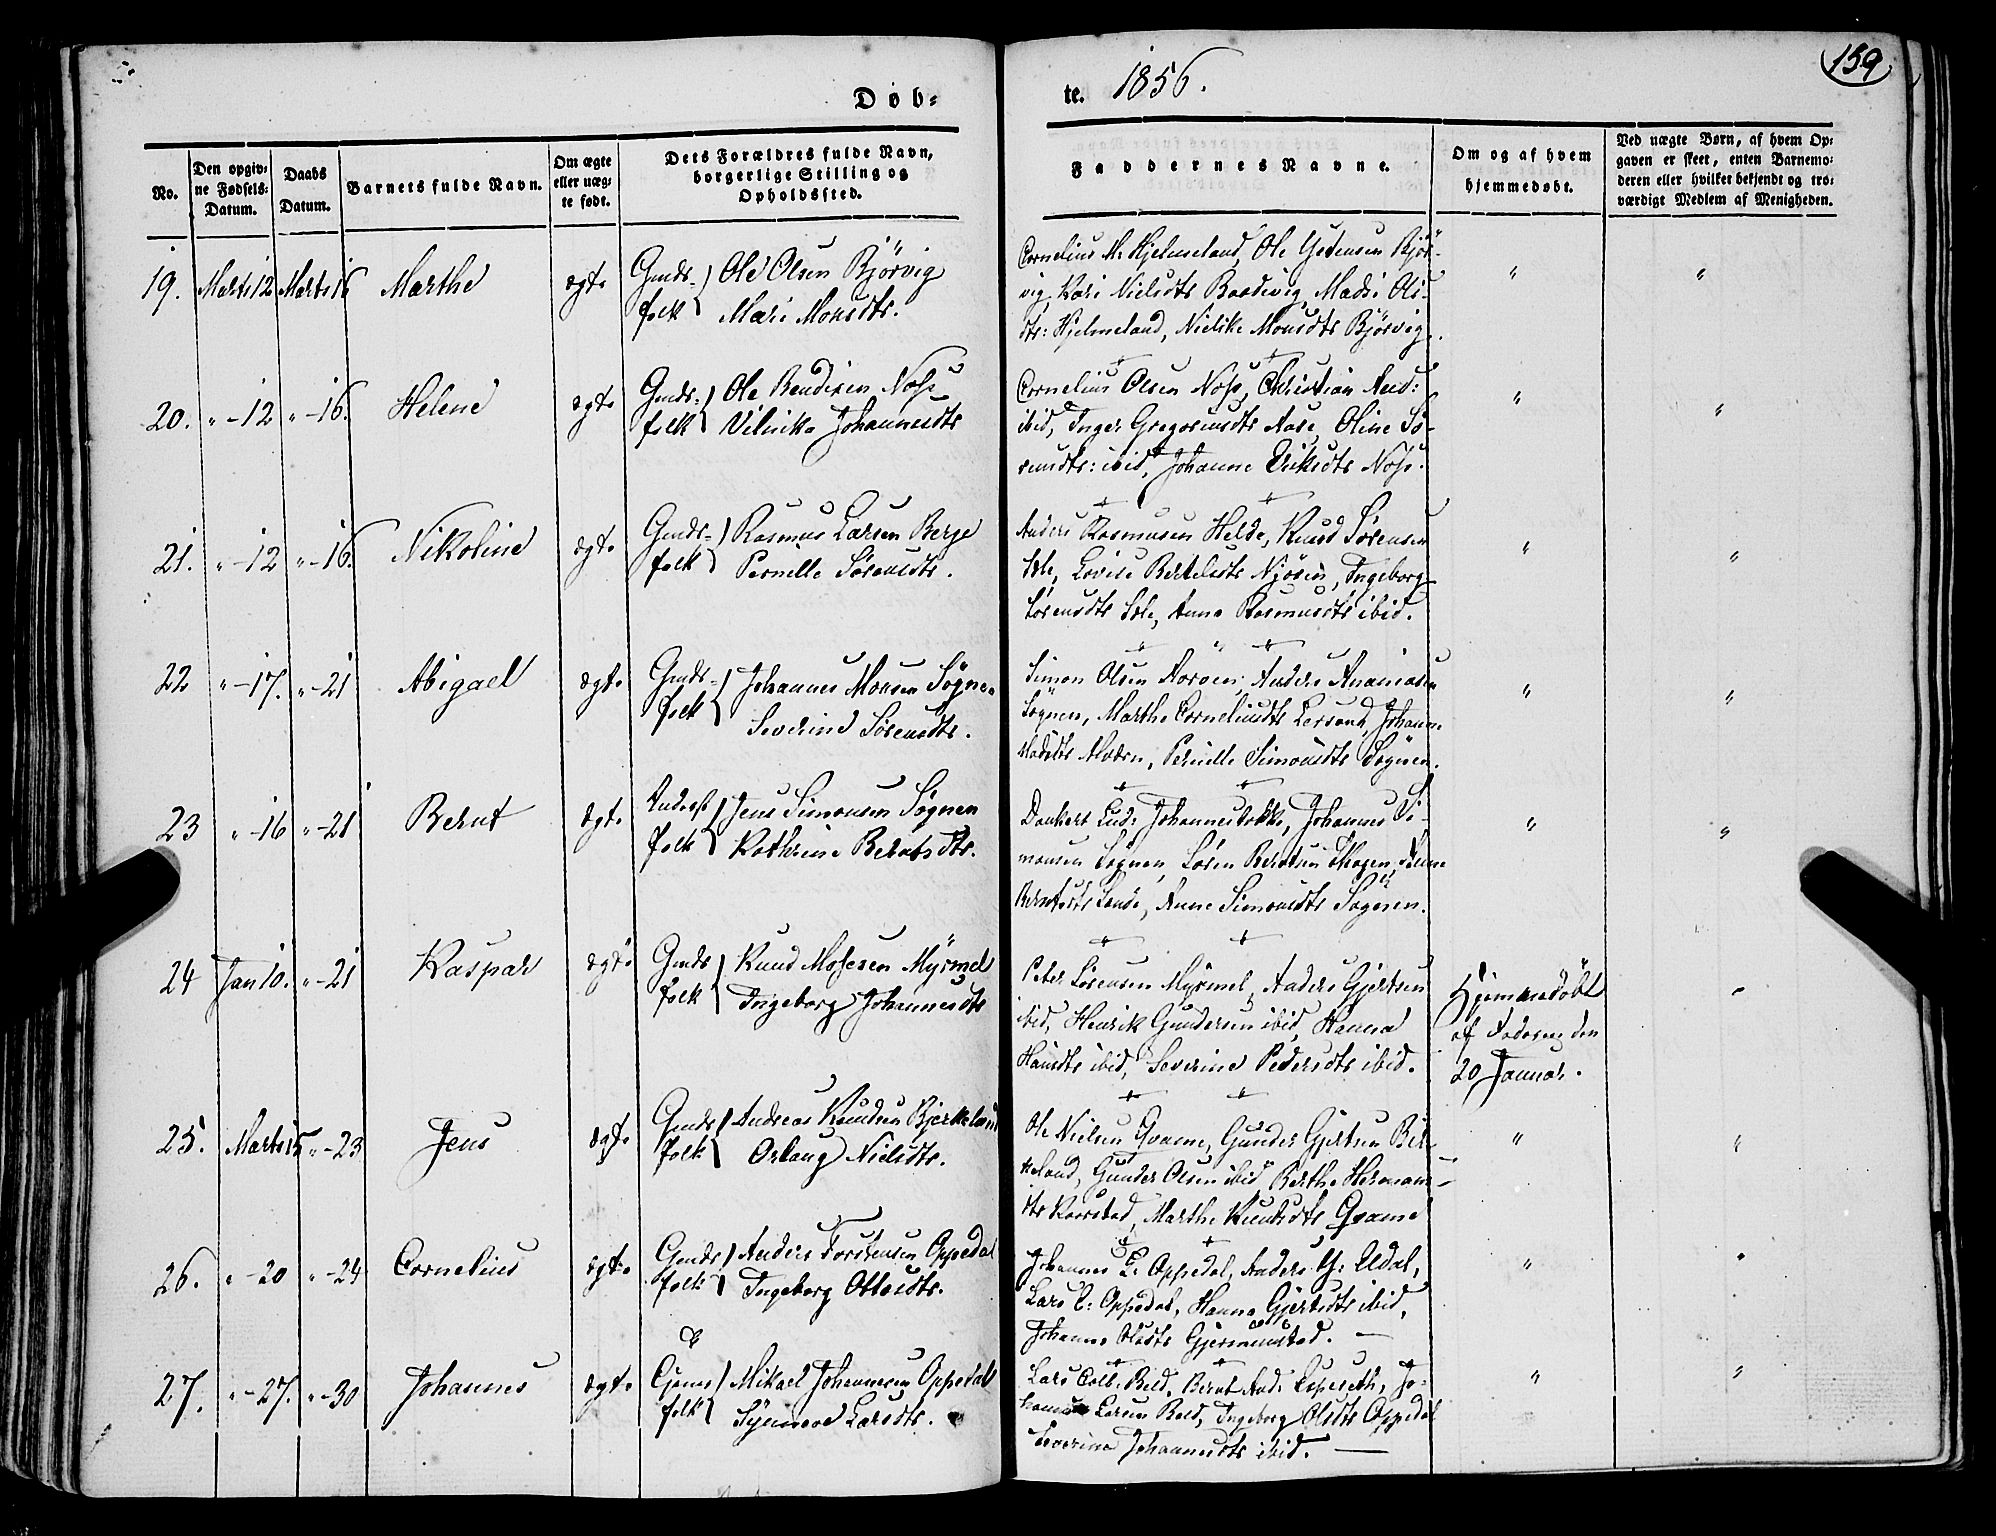 Døb-
te. 1856.
159
No.
Den opgiv-
ne Fødsels-
Datum.
Daabs
Datum.
Barnets fulde Navn.
Om ægte
eller uæg-
te født.
Dets Forældres fulde Navn,
borgerlige Stilling og
Opholdssted.
Faddernes Navne.
Om og af hvem
hjemmedøbt.
Ved uægte Børn, af hvem Op-
gaven er skeet, enten Barnemo-
deren eller hvilket bekjendt og tro-
værdigt Medlem af Menigheden.
19. Marts 12 Marts 16 Marthe ægte Gmds- folk Ole Olsen Bjørvig
Mari Monsdtr.
Cornelius M: Hjelmeland, Ole Bjør-
vig, Kari Nielsdtr Mads: Ols-
dtr: Hjelmeland, Nielike Monsdtr Bjørvig.
" "
20. " -12 " -16. Helene ægte Gmds- folk Ole Bendixen Nose
Johannesdtr
Cornelius Olsen Nose, Christian And:
ibid, Inger Gregoriusdtr Aase, Oline Sø-
rensdtr: ibid, Johanne Nose.
" "
21. " -12 " -16. Nikoline ægte Gmds- folk Rasmus Larsen Berge
Pernille Sørensdtr.
Anders Rasmusen Helde, Knud Sørensen
Lovise Bertelsdtr Njøsen, Ingeborg
Sørensdtr Anna Rasmusdtr ibid.
" "
22 " -17. " -21 Abigael ægte Gmds- folk Johannes Monsen Søgnen
Severine Sørensdtr.
Simon Olsen Anders Ananiasen
Søgnen, Marthe Corneliusdtr Johanne
Pernille Simonsdtr Søgnen.
" "
23 " -16 " -21 Bernt ægte folk Jens Simonsen Søgnen
Kathrine Berntsdtr.
Dankert Johannes Si-
monsen Søgnen, Søren Berntsen
Berntsdtr Sande, Anne Simonsdtr Søgnen.
" "
24 Jan 10. " -21 Kaspar ægte Gmds folk Knud Mosesen Myrmel
Ingeborg Johannesdtr
Peter Sørensen Myrmel, Anders Gjertsen
ibid, Henrik Gundersen ibid, Hanna
Hansdtr ibid, Severine Pedersdtr ibid.
Hjemmedøbt
af Faderen den
20 Januar.
"
25. Marts 15 " -23 Jens ægte Gmds folk Andreas Knudsen Bjerkeland
Orlaug Nielsdtr.
Ole Nielsen Qvame, Gunder Gjertsen Bir-
keland, Gunder Olsen ibid Berthe Herman-
dtr Marthe Knudsdtr Qvame
" "
26. " -20 " -24 Cornelius ægte Gmds folk Anders Torstensen Oppedal
Ingeborg Ottosdtr.
Johannes L: Oppedal, Anders
Lars Oppedal, Hanna Gjertsdtr ibid,
Johanne Olsdtr Gjermundstad. —
" "
27. " -27. " -30 Johannes ægte folk Mikael Johannesen Oppedal
Synneve Larsdtr.
Lars Bernt And: Jo-
Larsen Ingeborg Olsdtr Oppedal
Severine Johannesdtr ibid. —
" "